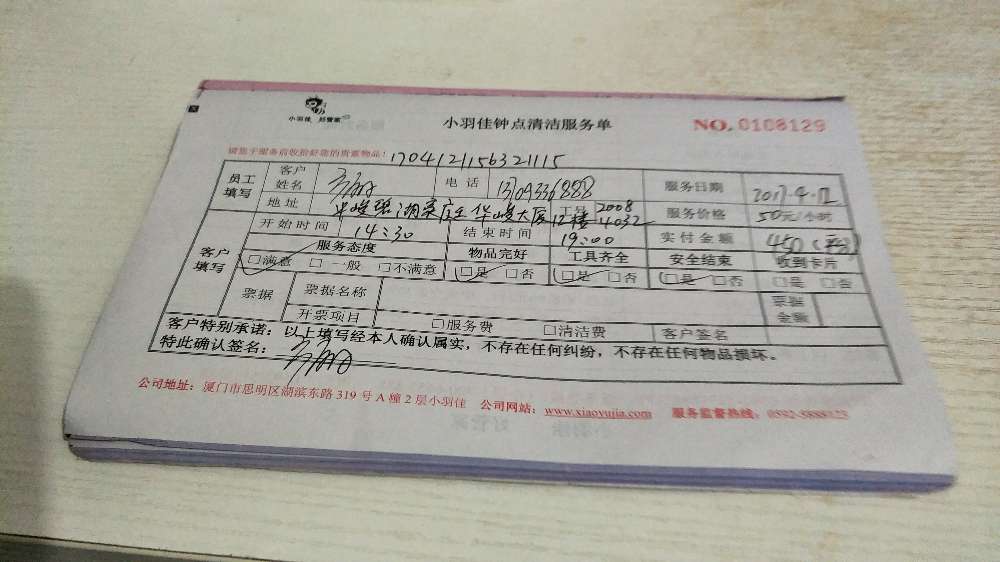 小羽佳 好管家
小羽佳钟点清洁服务单
NO. 0108129
请您于服务前收拾好您的贵重物品! 1704121156321115
员工填写 客户姓名 电话 服务日期 2017.4.12
地址 湖 大厦 12楼 工号 2008 4032 服务价格 50元/小时
开始时间 14:30 结束时间 19:00 实付金额 450
客户填写 服务态度 物品完好 工具齐全 安全结束 收到卡片
□满意 □一般 □不满意 □是 □否 □是 □否 □是 □否 □是 □否
票据 票据名称 票据金额
开票项目 □服务费 □清洁费 客户签名
客户特别承诺：以上填写经本人确认属实，不存在任何纠纷，不存在任何物品损坏。
特此确认签名：
公司地址：厦门市思明区湖滨东路 319 号 A 幢 2 层小羽佳 公司网站：www.xiaoyujia.com 服务监督热线：0592-